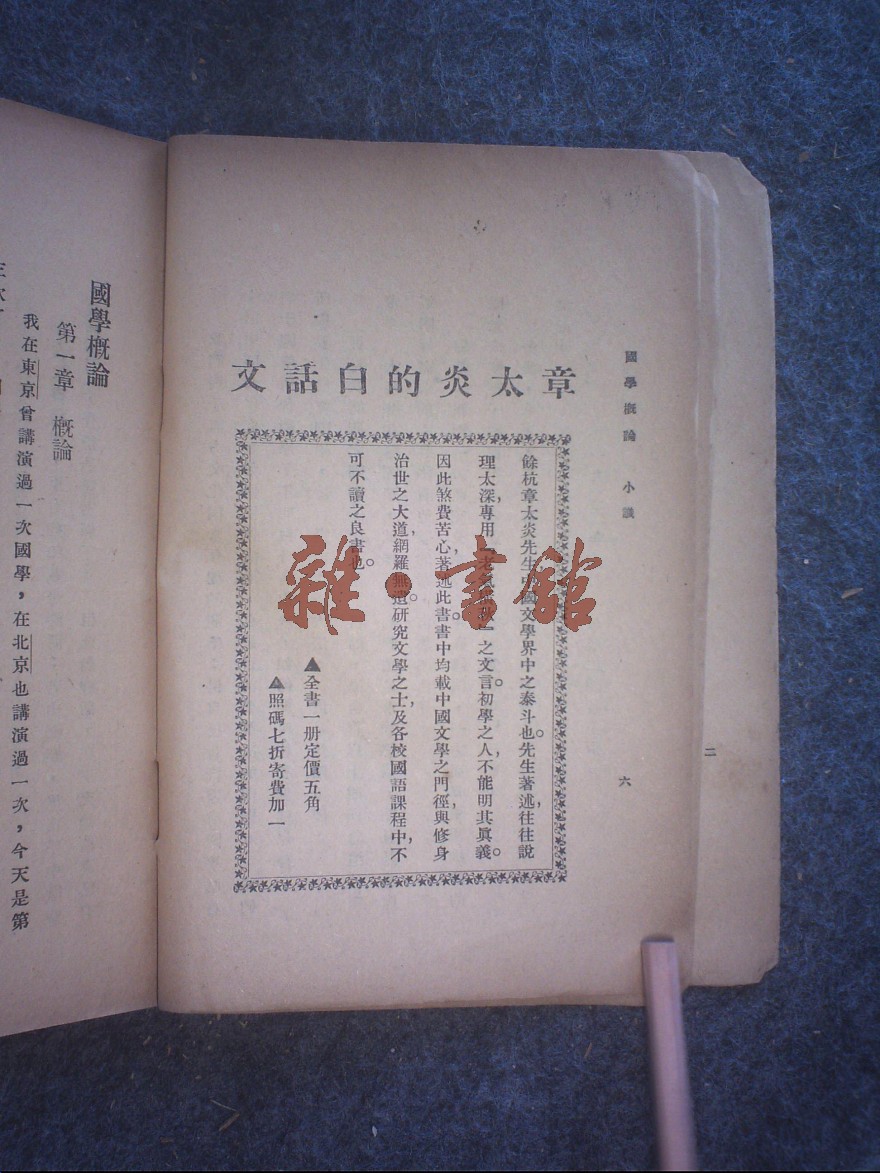 國學概論 小識
六
二
章太炎的白話文
餘杭章太炎先生中國文學界中之泰斗也。先生著述,往往說
理太深,專用『老氣橫秋』之文言。初學之人,不能明其眞義。
因此煞費苦心,著述此書。書中均載中國文學之門徑,與修身
治世之大道,網羅無遺。研究文學之士,及各校國語課程中,不
可不讀之良書也。
▲全書一册定價五角
▲照碼七折寄費加一
雜·書館
國學概論
第一章 概論
我在東京曾講演過一次國學,在北京也講演過一次,今天是第